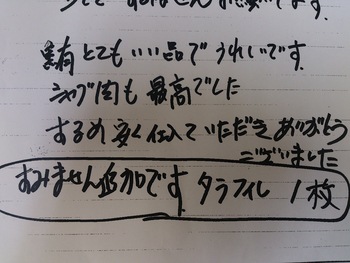 とてもいい品でうれしいです。
シャブ肉も最高でした
するめ安く仕入ていただきありがとう
ございました
すみません追加です タラフィレ 1枚